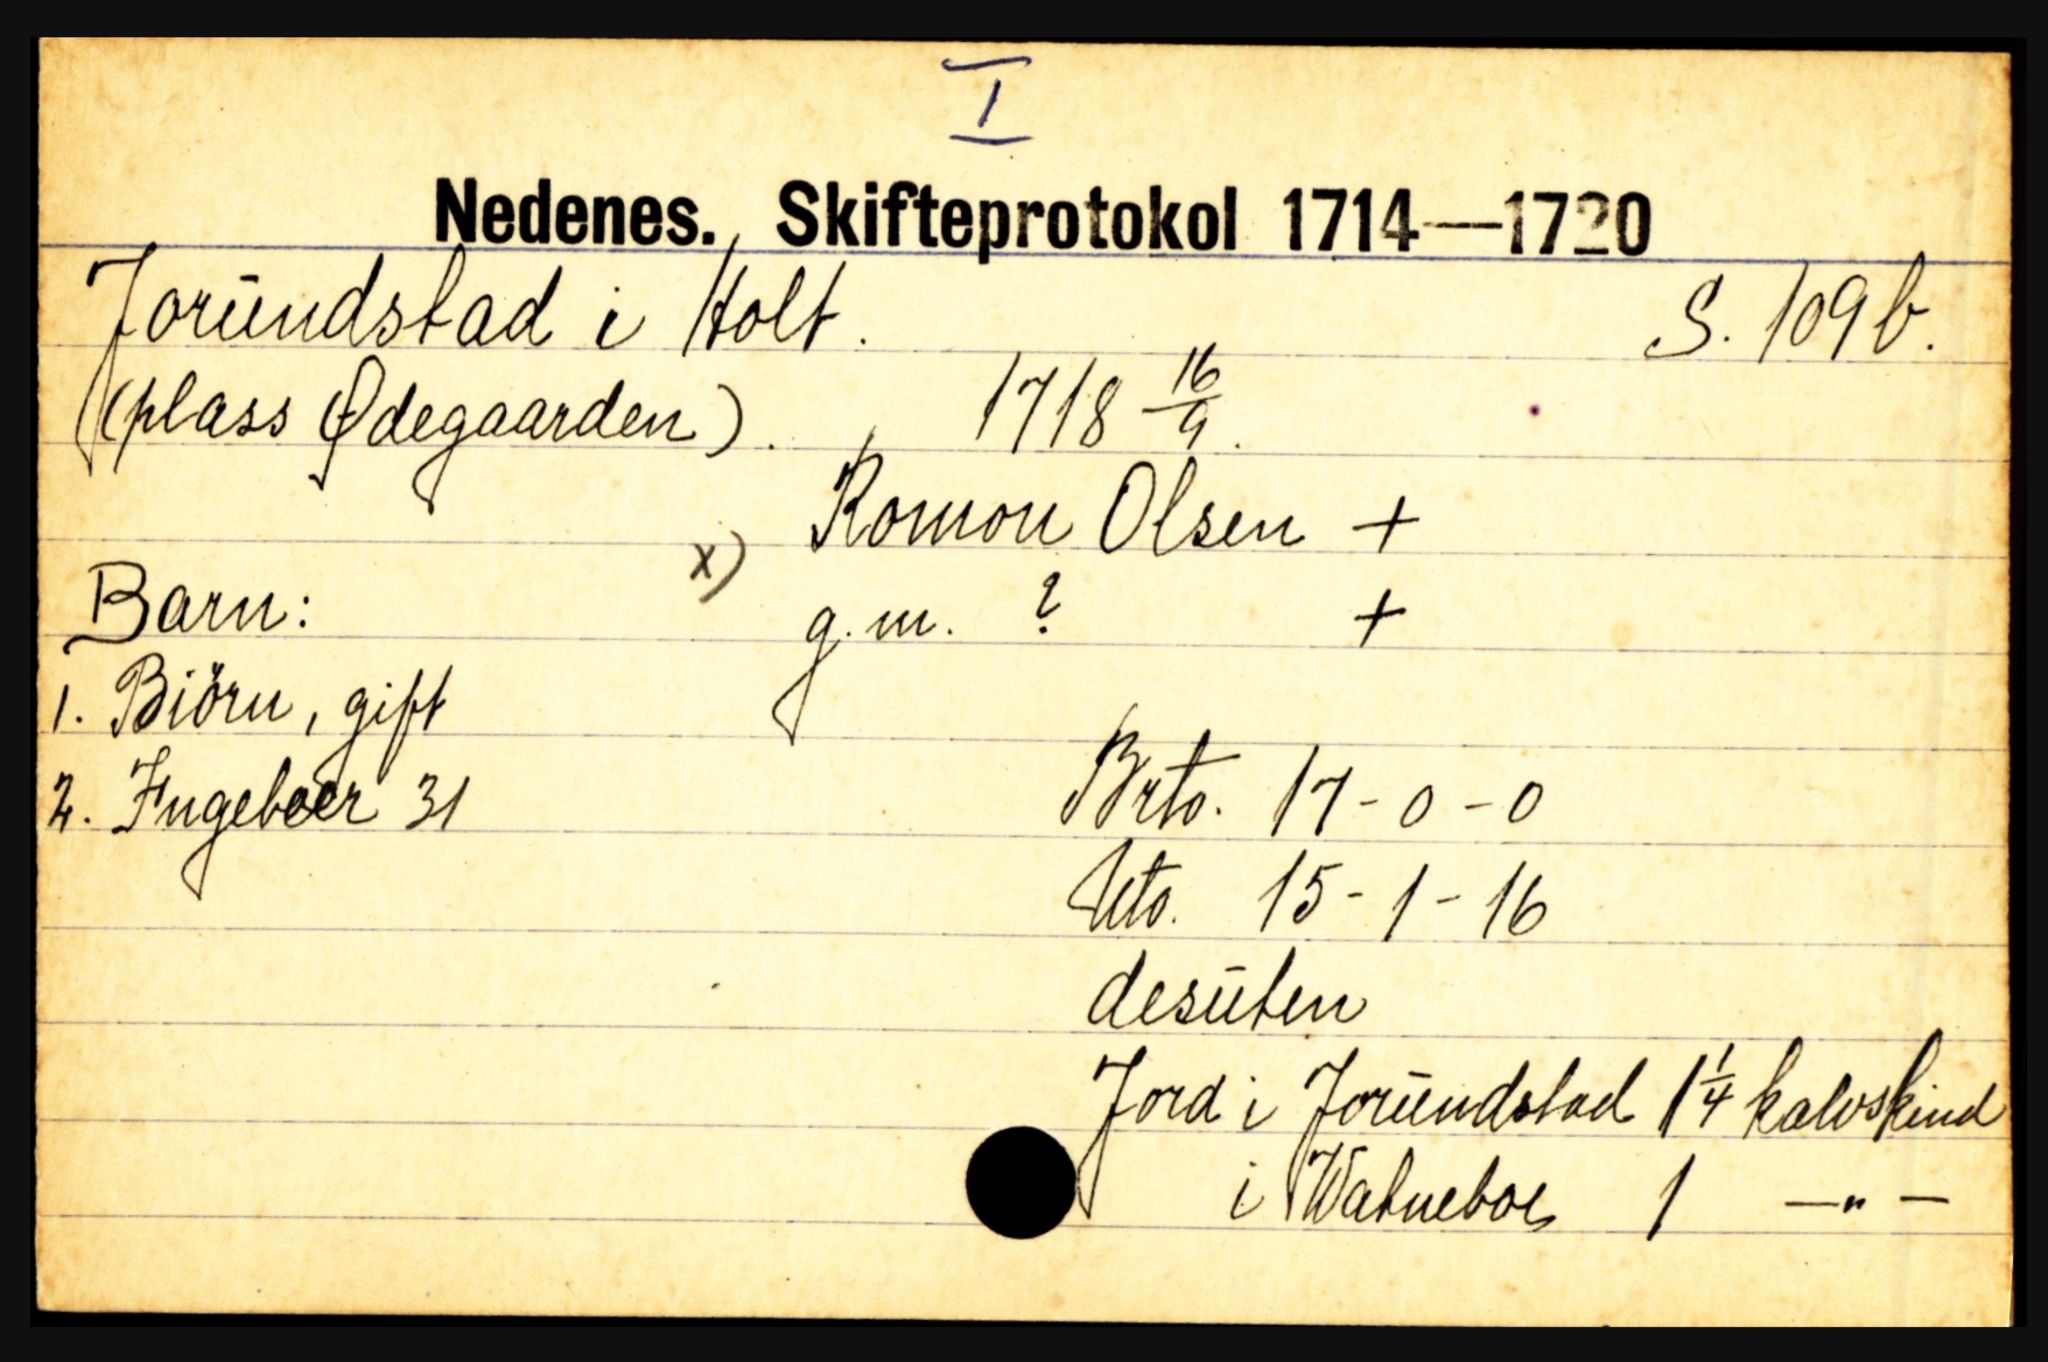 I
Nedenes. Skifteprotokol 1714—1720
Jorundstad i Holt. S. 109b.
(plass Ødegaarden). 1718 16/9.
Romon Olsen +
x) g.m. ? +
Barn:
1. Biörn, gift
2. Ingeboer 31
Brto. 17-0-0
Nto. 15-1-16
desuten
Jord i Jorundstad 1 1/4 kalvskind
i Watneboe 1 —"—